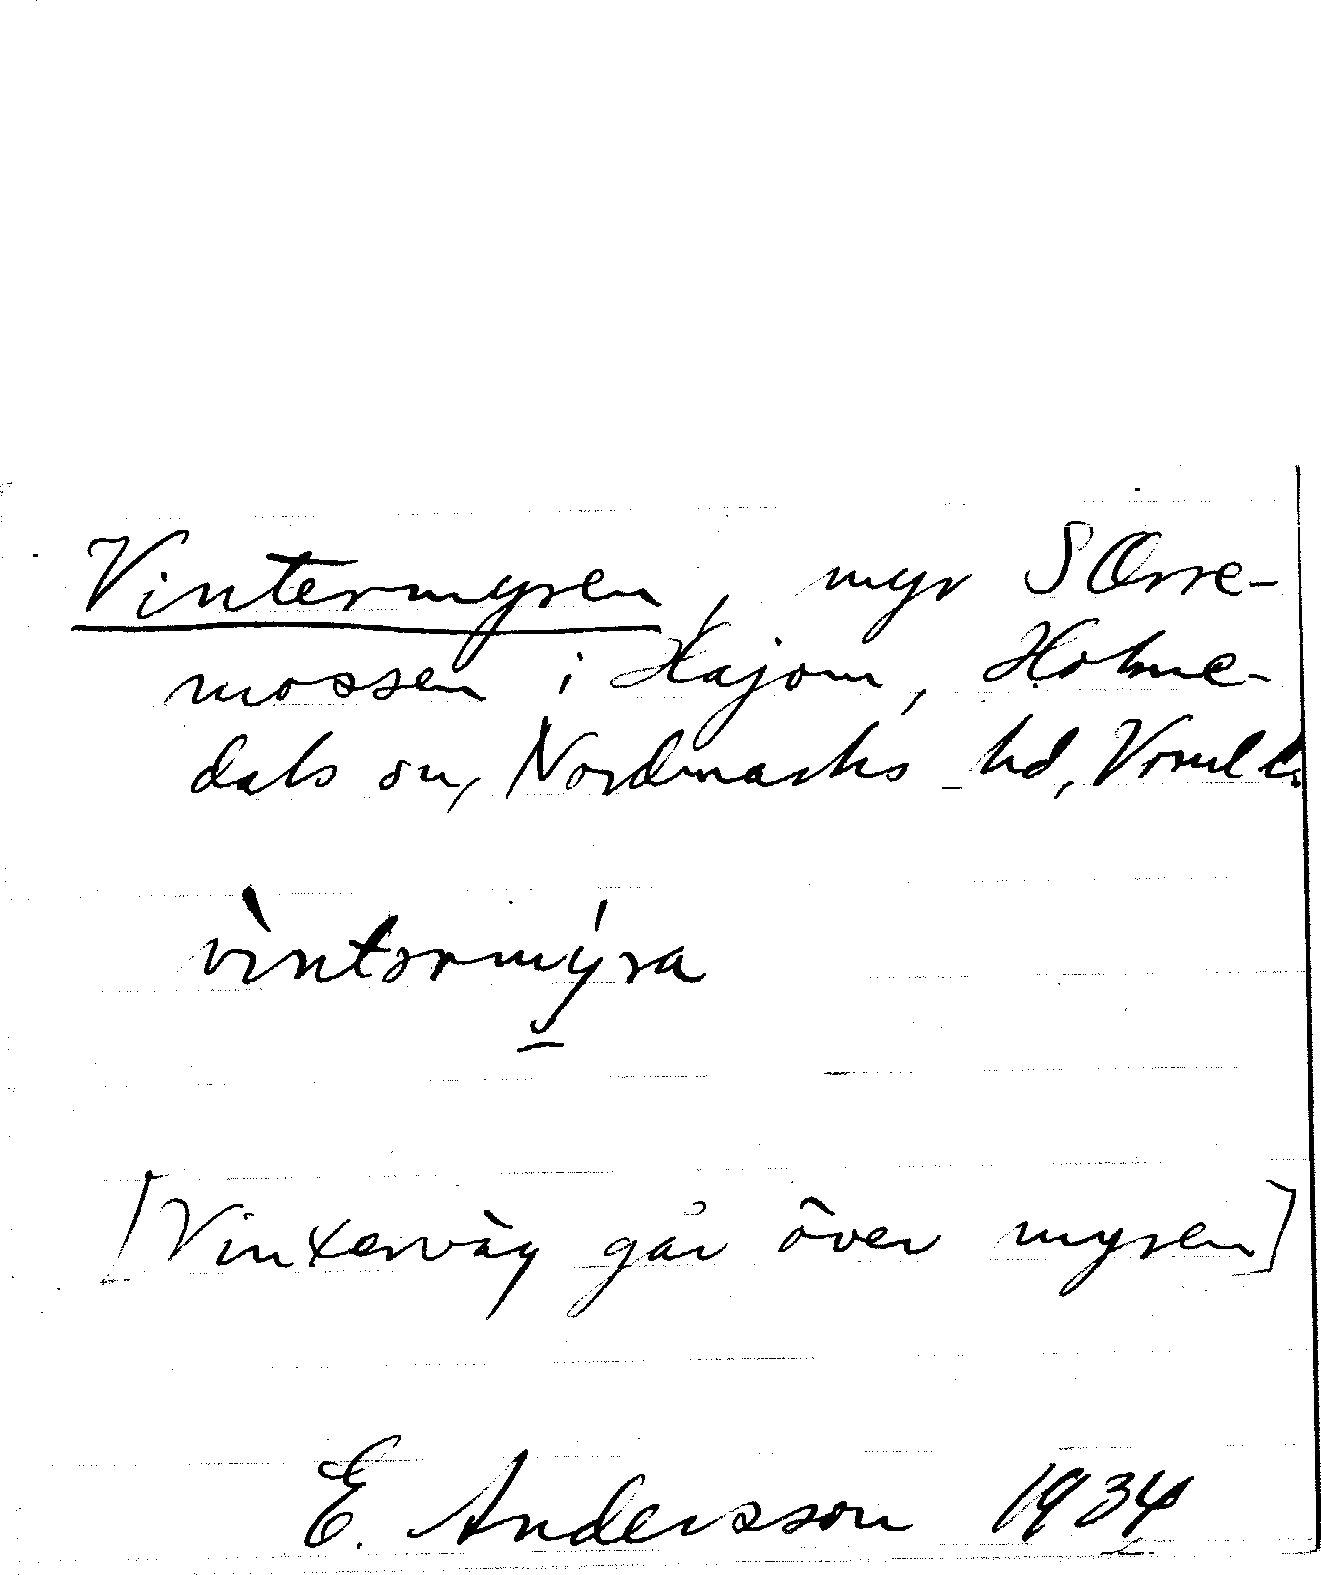 Vintermyren, myr S Orre-
mossen i Hajom, Holme-
dals sn, Nordmarks hd, Vrml l.
vìntərmý̱ra
[Vinterväg går över myren]
E. Andersson 1934